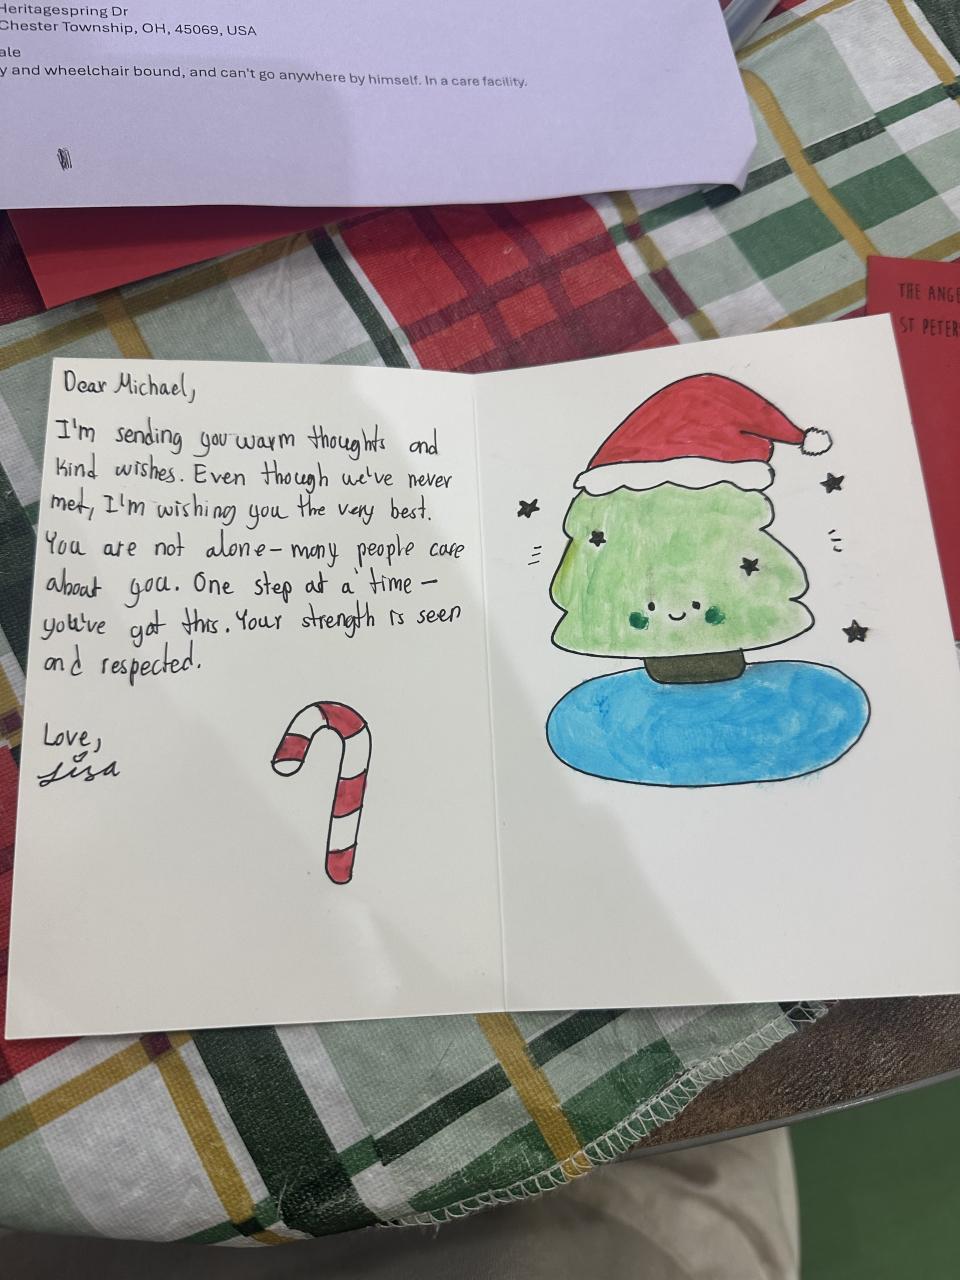 Heritagespring Dr
Chester Township, OH, 45069, USA
ale
y and wheelchair bound, and can't go anywhere by himself. In a care facility.
THE ANGE
ST PETER
Dear Michael,
I'm sending you warm thoughts and
kind wishes. Even though we've never
met, I'm wishing you the very best.
You are not alone – many people care
about you. One step at a time –
you've got this. Your strength is seen
and respected.
Love,
Lisa